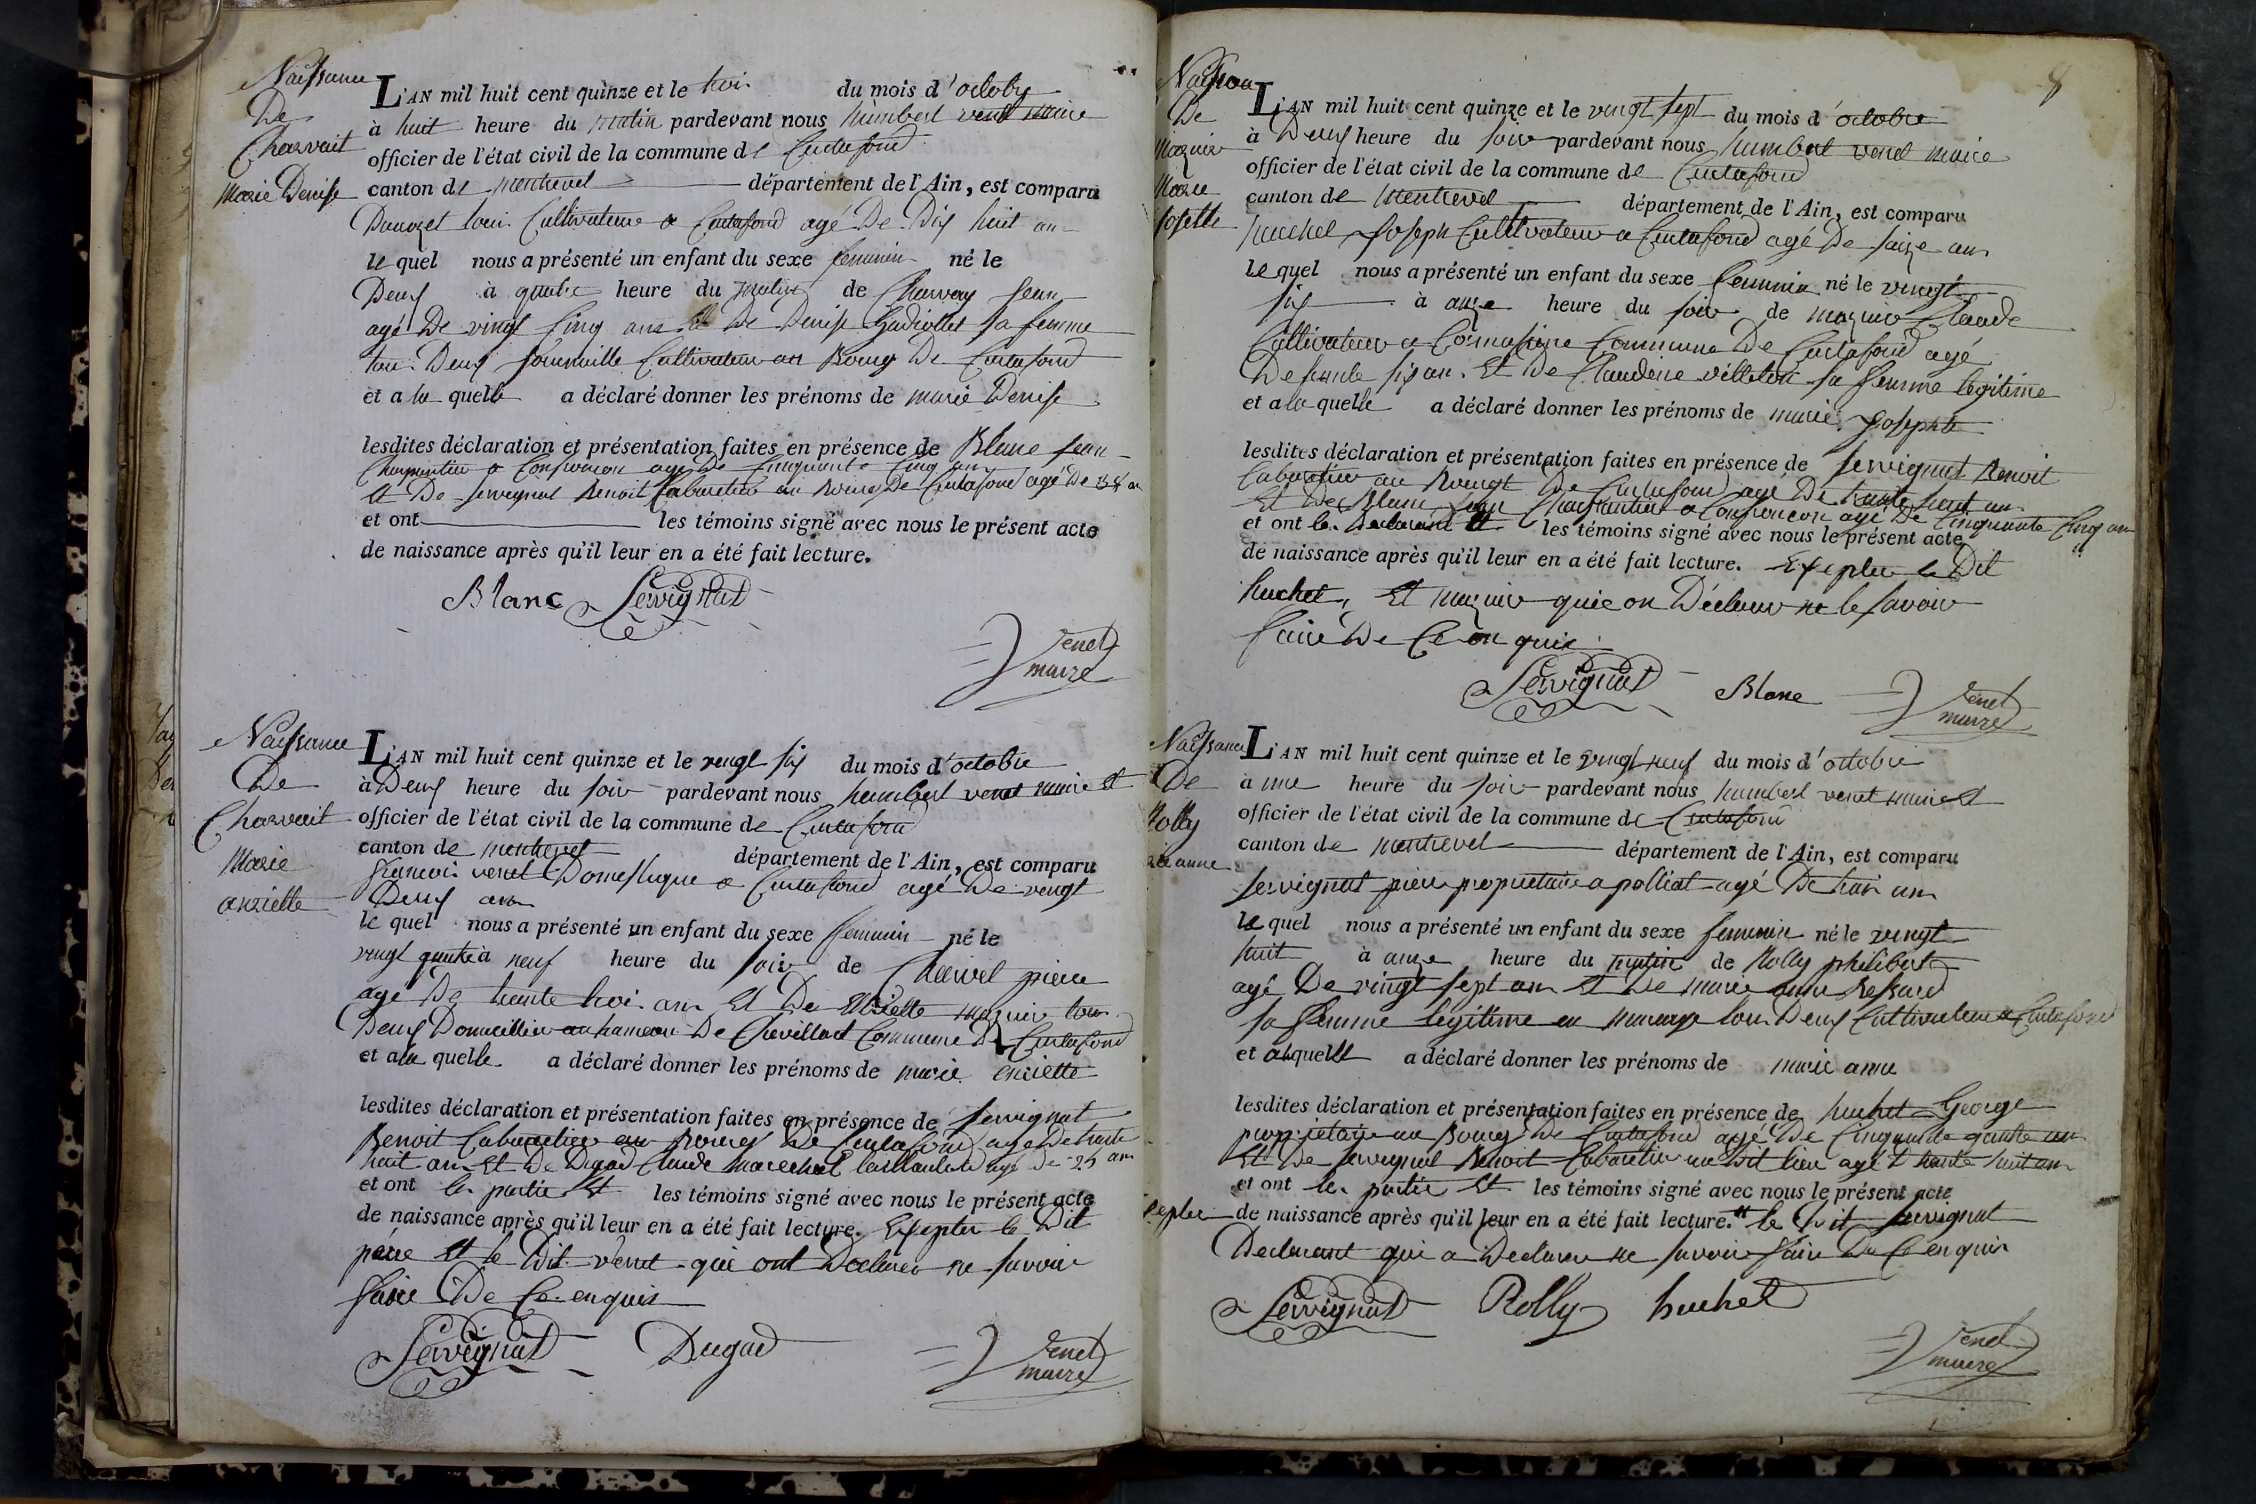 Naissance
De
Charvait
Marie Denise
L'AN mil huit cent quinze et le troi du mois d'octobre
à huit heure du matin pardevant nous humbert venet maire
officier de l'état civil de la commune de Curtafond
canton de montrevel département de l'Ain, est comparu
loui Cultivateur a Curtafond agé De Dix huit an
le quel nous a présenté un enfant du sexe feminin né le
Deux à quatre heure du matin de Charvay Jean
agé De vingt Cinq ans et De Denise Gadiollet sa femme
tou Deux Cultivateur au Bourg De Curtafond
et a la quelle a déclaré donner les prénoms de marie Denise
lesdites déclaration et présentation faites en présence de Blanc Jean
Charpentier a Confrancon agé De Cinquante Cinq an
et De Servignat Benoit Cabaretier au Bourg De Curtafond agé De 38 an
et ont les témoins signé avec nous le présent acte
de naissance après qu'il leur en a été fait lecture.
Blanc Servignat
venet
maire
Naissance
De
Charvait
Marie
anriette
L'AN mil huit cent quinze et le vingt six du mois d'octobre
à Deux heure du soir pardevant nous humbert venet maire et
officier de l'état civil de la commune de Curtafond
canton de montrevel département de l'Ain, est comparu
francoi venet Domestique a Curtafond agé De vingt
Deux ans
le quel nous a présenté un enfant du sexe feminin né le
vingt quatre à neuf heure du soir de Charvet pierre
agé De trente troi an Et De mazuir tou
Deux Domicillier au hameau De Chevillard Commune De Curtafond
et a la quelle a déclaré donner les prénoms de marie enriette
lesdites déclaration et présentation faites en présence de Servignat
Benoit Cabaretier au Bourg De Curtafond agé De trente
huit an Et De Dugad Claude marechal agé De 25 an
et ont les partie Et les témoins signé avec nous le présent acte
de naissance après qu'il leur en a été fait lecture. Exepter le Dit
père et le Dit venet qui ont Declarer ne savoir
faire De Ce enquis
Servignat Dugad
venet
maire
8
Naissance
De
Mazuir
Marie
Josette
L'AN mil huit cent quinze et le vingt sept du mois d'octobre
à Deux heure du soir pardevant nous humbert venet maire
officier de l'état civil de la commune de Curtafond
canton de montrevel département de l'Ain, est comparu
huchet Joseph Cultivateur a Curtafond agé De saize an
le quel nous a présenté un enfant du sexe feminin né le vingt
six à onze heure du soir de mazuir Claude
Cultivateur a Commune De Curtafond agé
De trente six an. Et De Claudine sa femme legitime
et a la quelle a déclaré donner les prénoms de marie Josephte
lesdites déclaration et présentation faites en présence de Servignat Benoit
Cabaretier au Bourgt De Curtafond agé De trente huit an
Et De Blanc Jean Charpantier a Confrancon agé De Cinquante Cinq an
et ont le Declarant Et les témoins signé avec nous le présent acte
de naissance après qu'il leur en a été fait lecture. Exepter le Dit
huchet, Et mazuir quie on Déclarer ne le savoir
faire De Ce on quis
Servignat Blanc venet
maire
Naissance
De
Rolly
marie anne
L'AN mil huit cent quinze et le vingt neuf du mois d'octobre
à une heure du soir pardevant nous humbert venet maire et
officier de l'état civil de la commune de Curtafond
canton de montrevel département de l'Ain, est comparu
servignat pierre propriétaire a polliat agé De an
le quel nous a présenté un enfant du sexe feminin né le vingt
huit à onze heure du matin de Rolly philibert
agé De vingt sept an et De marie anne
sa femme legitime en mariage tou Deux Cultivateur a Curtafond
et a laquelle a déclaré donner les prénoms de marie anne
lesdites déclaration et présentation faites en présence de huchet George
propriétaire au Bourg De Curtafond agé De Cinquante quatre an
Et De Servignat Benoit Cabaretier au Dit lieu agé trente huit an
et ont les partie Et les témoins signé avec nous le présent acte
exepter de naissance après qu'il leur en a été fait lecture. le Dit servignat
Declarant qui a Declarer ne savoir faire De Ce enquis
Servignat Rolly huchet
venet
maire